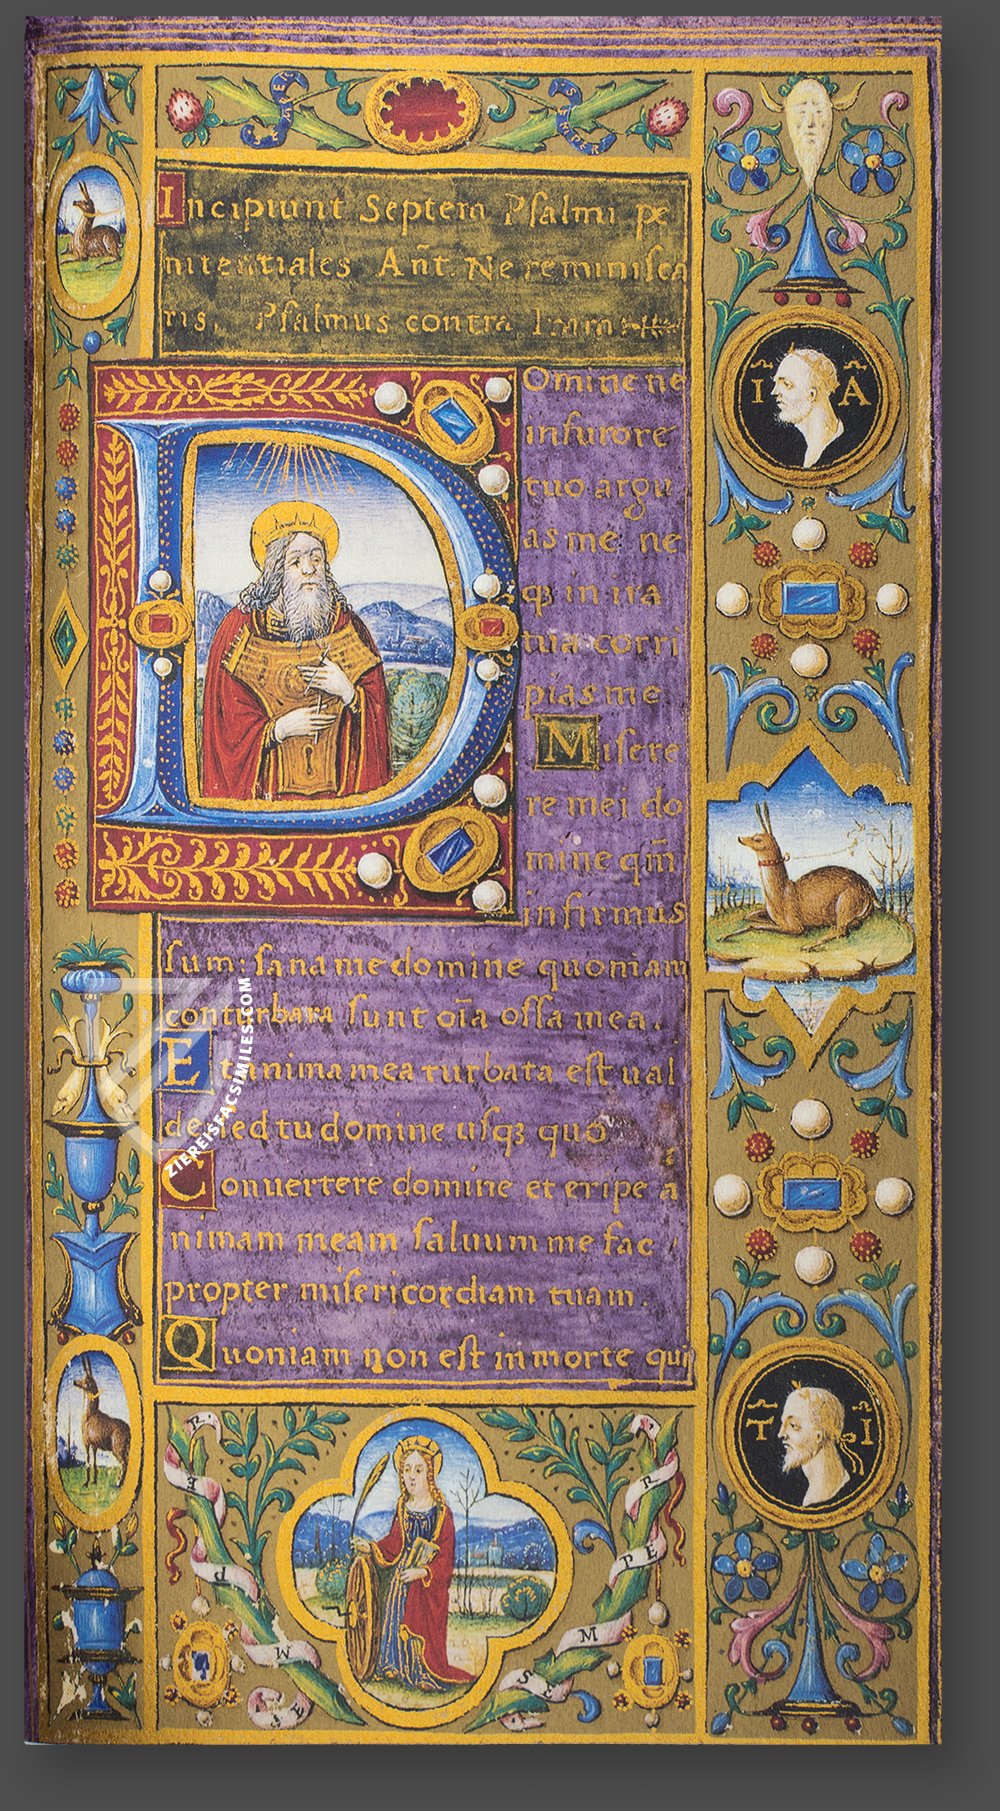 SEMPER
SEMPER
Incipiunt Septem Psalmi pe
nitentiales Añt. Ne reminisca
ris. Psalmus contra Iram
I A
Domine ne
in furore
tuo argu
as me ne
qꝫ in ira
tua corri
pias me
Misere
re mei do
mine qm̃
infirmus
sum: sana me domine quoniam
conturbata sunt oĩa ossa mea.
Et anima mea turbata est ual
de sed tu domine usqꝫ quo
Conuertere domine et eripe a
nimam meam saluum me fac
propter misericordiam tuam.
Quoniam non est in morte qui
T I
SEMPER
SEMPER
ZIEREISFACSIMILES.COM